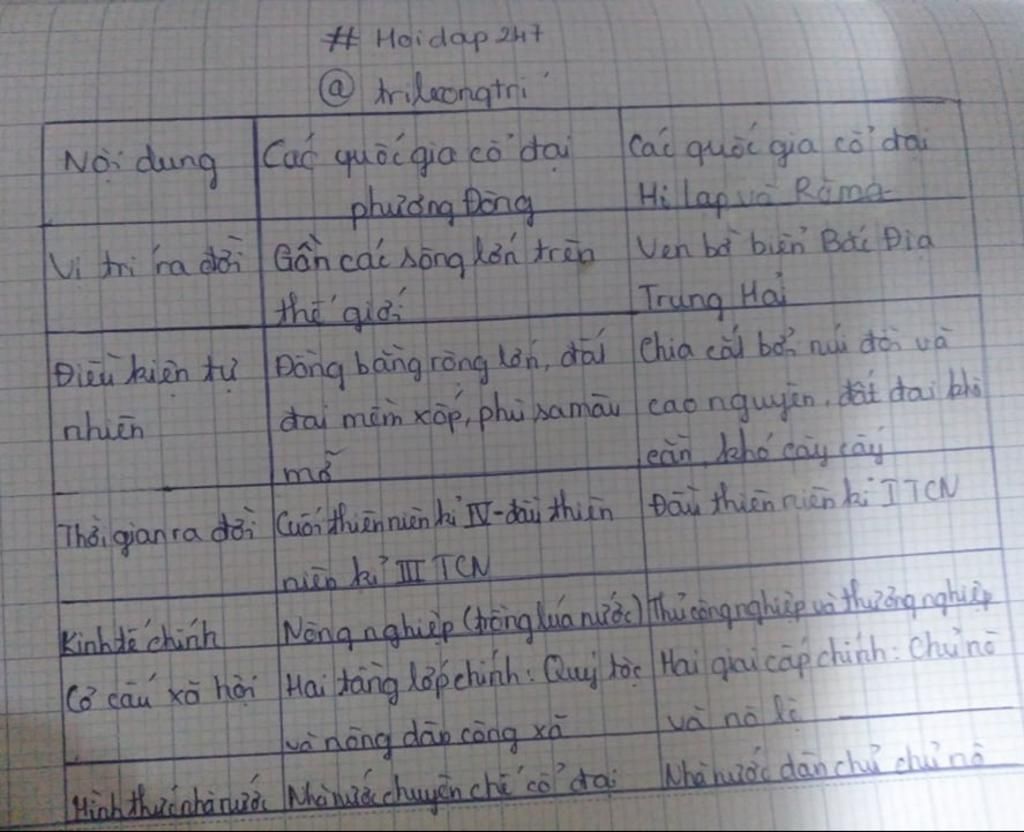 # Hoidap 247
@ trileongtri
Nội dung
Các quốc gia cổ đại
phương Đông
Các quốc gia cổ đại
Hi Lạp và Rôma
Vị trí ra đời
Gần các sông lớn trên
thế giới
Ven bờ biển Bắc Địa
Trung Hải
Điều kiện tự
nhiên
Đồng bằng rộng lớn, đất
đai mềm xốp, phù sa màu
mỡ
Chia cắt bởi núi đồi và
cao nguyên, đất đai khô
cằn, khó cày cấy
Thời gian ra đời
Cuối thiên niên kỉ IV - đầu thiên
niên kỉ III TCN
Đầu thiên niên kỉ I TCN
Kinh tế chính
Nông nghiệp (trồng lúa nước)
Thủ công nghiệp và thương nghiệp
Cơ cấu xã hội
Hai tầng lớp chính: Quý tộc
và nông dân công xã
Hai giai cấp chính: Chủ nô
và nô lệ
Hình thức nhà nước
Nhà nước chuyên chế cổ đại
Nhà nước dân chủ chủ nô